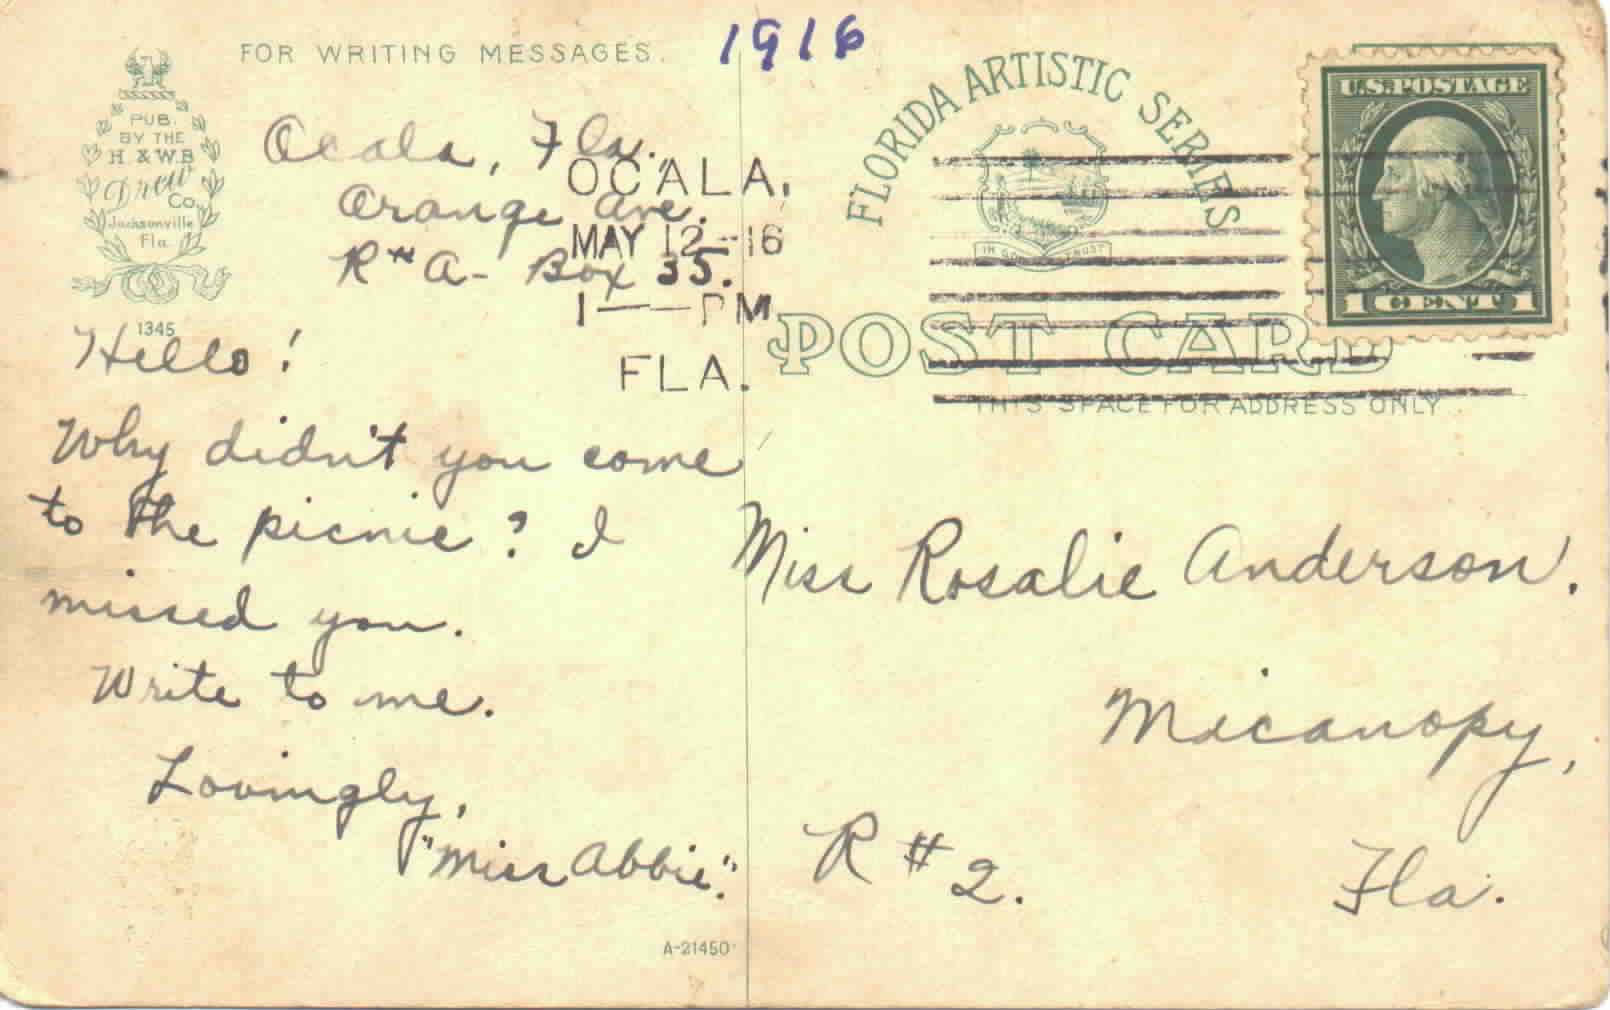 1916
FOR WRITING MESSAGES.
PUB.
BY THE
H. & W.B.
Drew
Co.
Jacksonville
Fla.
1345
Ocala, Fla.
Orange Ave.
R # A - Box 35.
Hello!
Why didn't you come
to the picnic? I
missed you.
Write to me.
Lovingly,
"Miss Abbie".
A-21450
OCALA,
MAY 12 -16
1 — PM
FLA.
FLORIDA ARTISTIC SERIES
IN GOD TRUST
POST CARD
THIS SPACE FOR ADDRESS ONLY
U.S. POSTAGE
1 CENT 1
Miss Rosalie Anderson.
Micanopy,
R # 2. Fla.